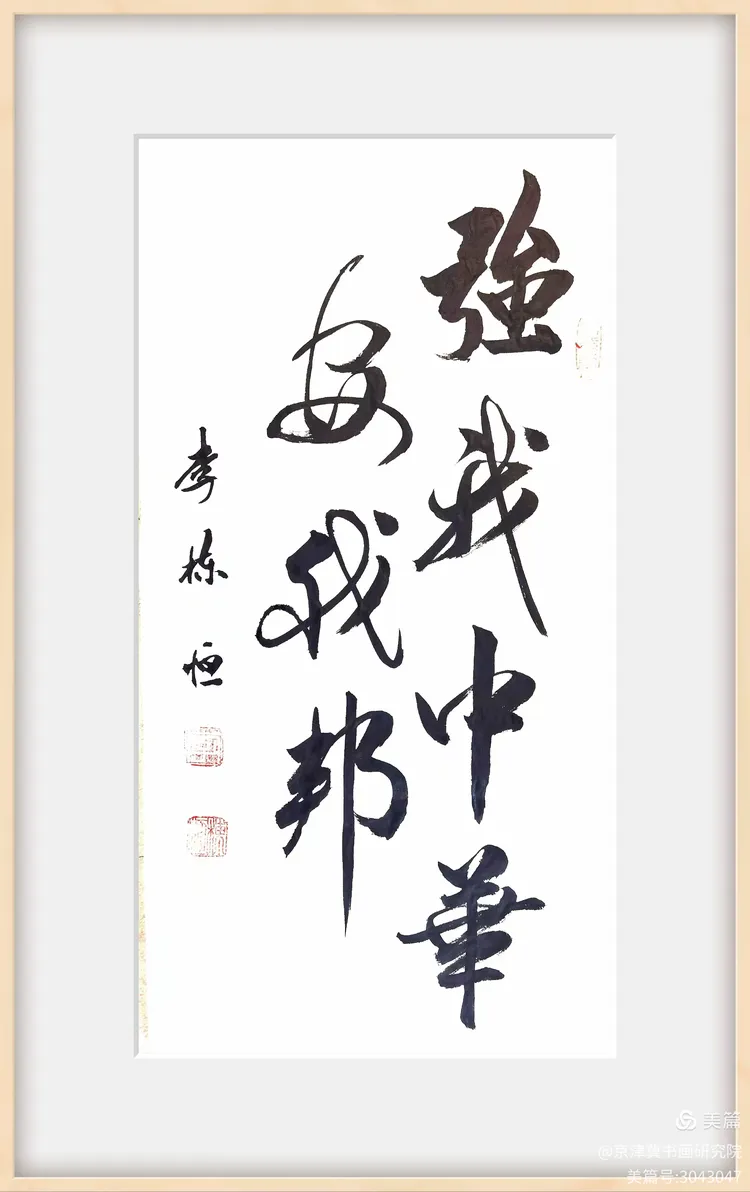 強我中華
安我邦
李栋恒
美篇
@京津冀书画研究院
美篇号:3043047